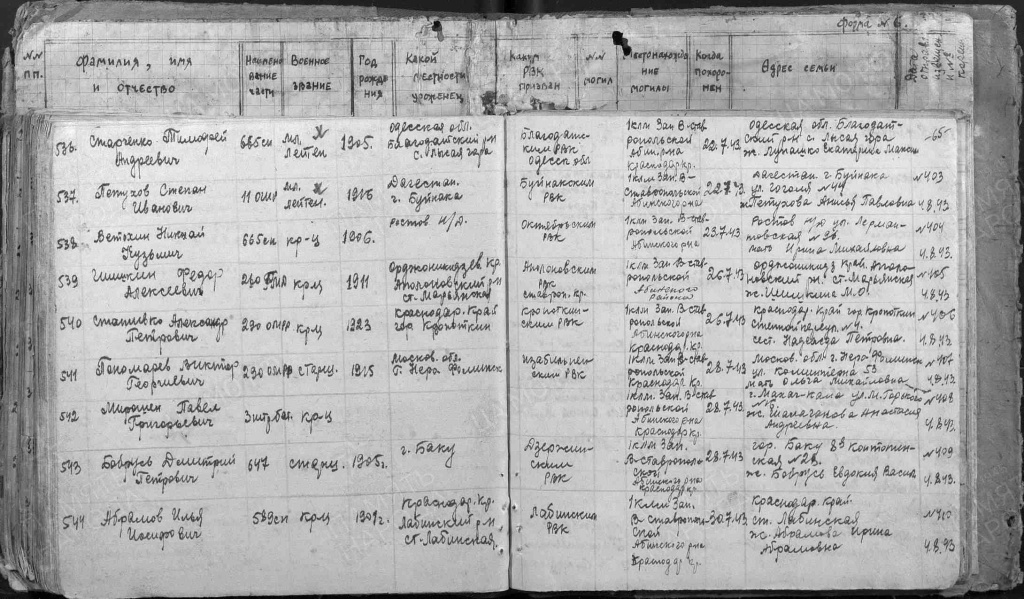 Форма №6.
№№ пп.
Фамилия, имя
и отчество
Наимено
вание
части
Военное
звание
Год
рожде
ния
Какой
местности
уроженец
Каким
РВК
призван
№№
могил
Местонахожде
ние
могилы
Когда
похоро-
нен
Адрес семьи
536. Старченко Тимофей
Андреевич
665сп
мл.
лейтен.
1905.
Одесская обл.
Благодатский р-н
с. Лысая гора
Благодатс-
ким РВК
Одесск. обл
1клм Зап. В-став-
ропольской
Абин. р-на
Краснодар. кр.
22.7.43
Одесская обл. Благодат-
ский р-н с. Лысая гора
ж. Лупашко Екатерина
-65-
537. Петухов Степан
Иванович
11
мл.
лейтен.
1916
Дагестан.
г. Буйнака
Буйнакским
РВК
1клм Зап. В-
Ставропольской
Абинского р-на
22.7.43.
Дагестан. г. Буйнака
ул. Гоголя №44
ж. Петухова Павловна
№403
4.8.43.
538. Ветохин Николай
Кузьмич
665сп
кр-ц
1906.
Ростов н/Д.
Октябрьским
РВК
1клм Зап. В-став-
ропольской
Абинского р-на
23.7.43
Ростов н/Д ул. Лерман-
товская №36.
мать Ирина Михайловна
№404
4.8.43
539 Шишкин Федор
Алексеевич
кр-ц
1911
Орджоникидзев. кр.
Аполоновский р-н
ст. Марьинская
Аполоновским
РВК
Ставроп. кр.
1клм Зап. В-Став-
ропольской
Абинского
района
26.7.43
Орджоникидз. край. Аполо-
новский р-н. ст. Марьинская
ж. Шишкина М.О.
№405
4.8.43
540 Александр
Петрович
290
кр-ц
1923
Краснодар. край
гор. Кропоткин
Кропоткин-
ским РВК
1клм Зап. В-став-
ропольской
Абинского р-на
Краснодар. кр.
26.7.43
Краснодар. край гор. Кропоткин
Степной переул. №4.
сест. Надежда Петровна.
№406
4.8.43
541 Пономарев Виктор
Георгиевич
290
старц.
1915
Москов. обл.
г. Нера Фоминск
ским РВК
1клм Зап. В-став-
ропольской
Краснодар. кр.
28.7.43
Москов. обл. г. Нера Фоминск
ул. Коминтерна 53
мать Ольга Михайловна
№407
4.8.43
542 Павел
Григорьевич
3 штр. бат.
кр-ц
1клм. Зап. В-став-
ропольской
Абинского р-на
Краснодар кр.
28.7.43.
г. Махач-кала ул. М. Горького
ж. Анастасия
Андреевна.
№408
4.8.43.
543 Бобрусь Дмитрий
Петрович
647
старц.
1905г.
г. Баку
Дзержин-
ским
РВК
1клм Зап.
В-ставрополь-
ской
Абинского р-на
Краснодар кр.
28.7.43
гор. Баку
ж. Бобрусь Евдокия
№409
4.8.43.
544 Абрамов Илья
Иосифович
589сп
кр-ц
1901г.
Краснодар. кр.
Лабинский р-н
ст. Лабинская
Лабинским
РВК
1клм Зап.
В-ставрополь-
ской
Абинского р-на
Краснодар кр.
30.7.43
Краснодар. край.
ст. Лабинская
ж. Абрамова Ирина
Абрамовна
№410
4.8.43